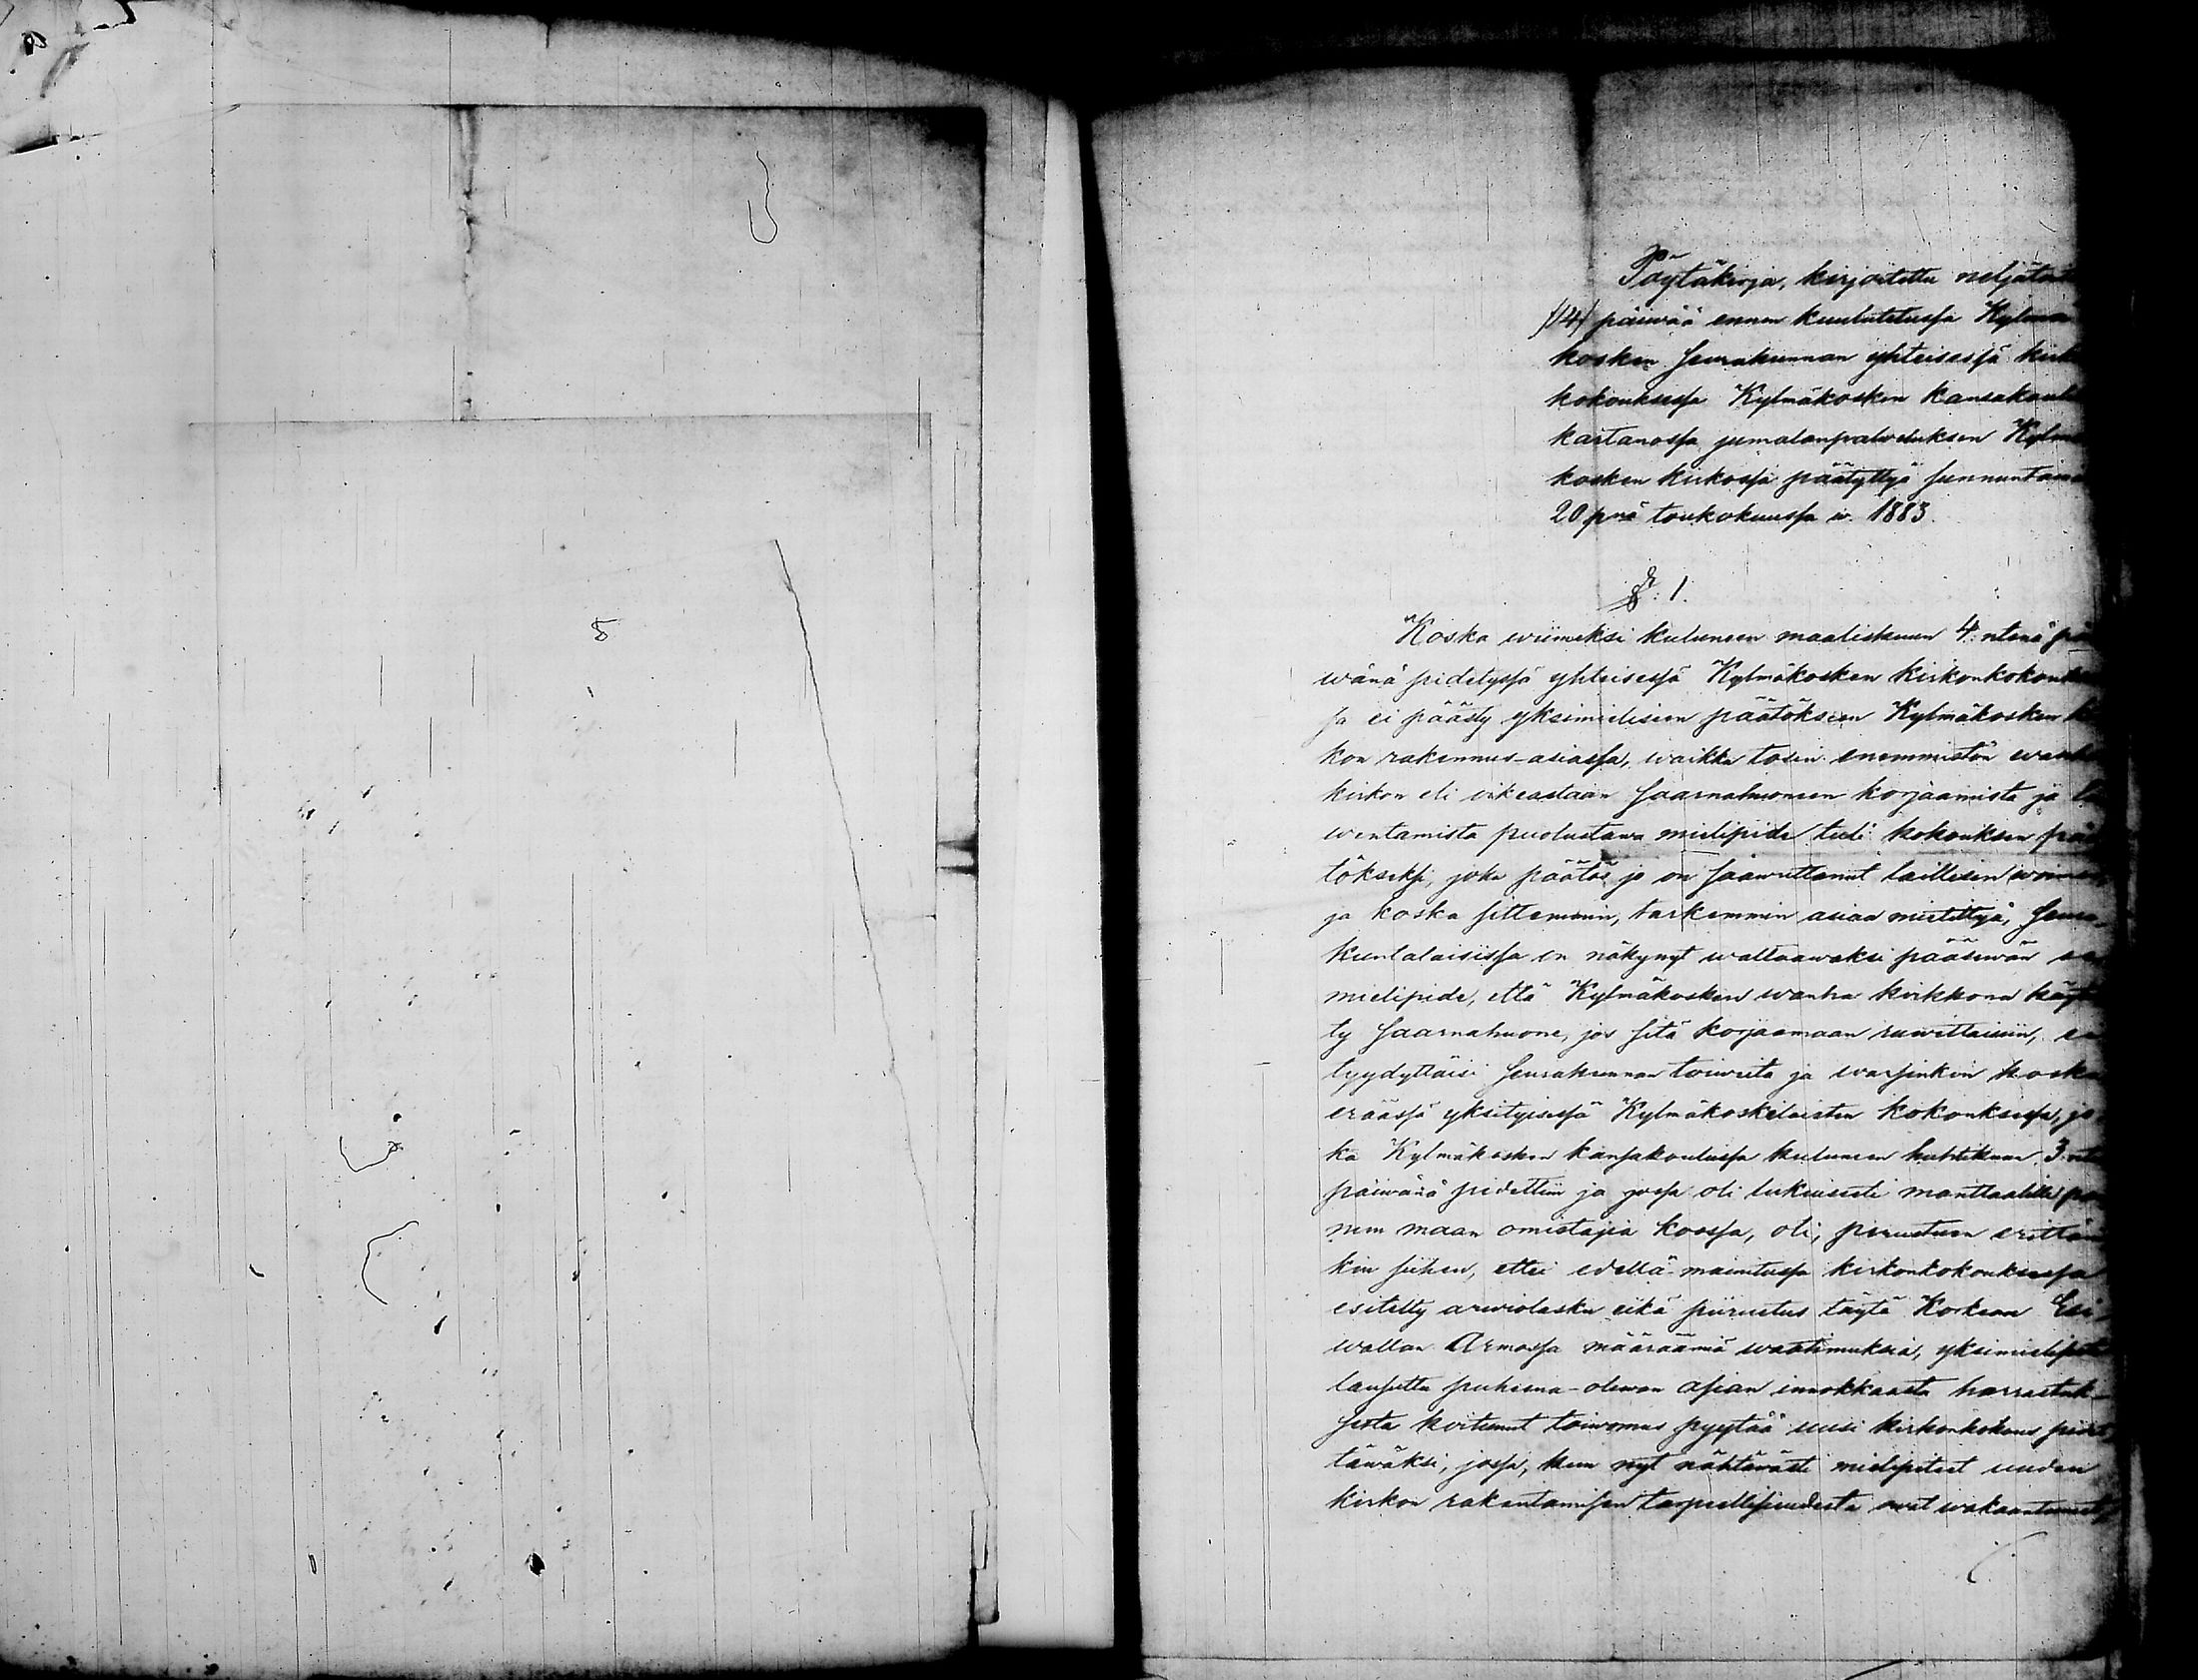 Pöytäkirja, kirjoitettu neljätoista
/14/ päiwää ennen kuulutetussa Kylmä
kosken seurakunnan yhteisessä kirkon
kokouksessa Kylmäkosken kansakoulu
kartanossa jumalanpalweluksen Kylmä
kosken kirkossa päätyttyä sunnuntaina
20 pnä toukokuussa w. 1883.
§. 1.
Koska wiimeksi kuluneen maaliskuun 4:ntenä päi
wänä pidetyssä yhteisessä Kylmäkosken kirkonkokoukses
sa ei päästy yksimieliseen päätökseen Kylmäkosken kir
kon rakennus-asiassa, waikka tosin enemmistön wanhan
kirkon eli oikeastaan saarnahuoneen korjaamista ja le
wentamista puolustawa mielipide tuli kokouksen pää
tökseksi, joka päätös jo on saawuttanut laillisen woiman,
ja koska sittemmin, tarkemmin asiaa mietittyä, seura
kuntalaisissa on näkynyt waltaawaksi pääsewän se
mielipide, että Kylmäkosken wanha kirkkona käyte
ty saarnahuone, jos sitä korjaamaan ruwettaisiin, ei
tyydyttäisi seurakunnan toiweita ja warsinkin koska
eräässä yksityisessä Kylmäkoskelaisten kokouksessa, jo
ka Kylmäkosken kansakoulussa kuluneen huhtikuun 3:nte
päiwänä pidettiin ja jossa oli lukuisasti manttaalille pan
nun maan omistajia koossa, oli, perustuen erittäin
kin siihen, ettei edellä-mainitussa kirkonkokouksessa
esitelty arwiolasku eikä piirustus täytä Korkean Esi
wallan Armossa määräämiä waatimuksia, yksimielisesti
lausuttu puheena-olewan asian innokkaasta harrastuk-
sesta koitunut toiwomus pyytää uusi kirkonkokous pidet
täwäksi, jossa, kun nyt nähtäwästi mielipiteet uuden
kirkon rakentamisen tarpeellisuudesta owat wakaantuneet